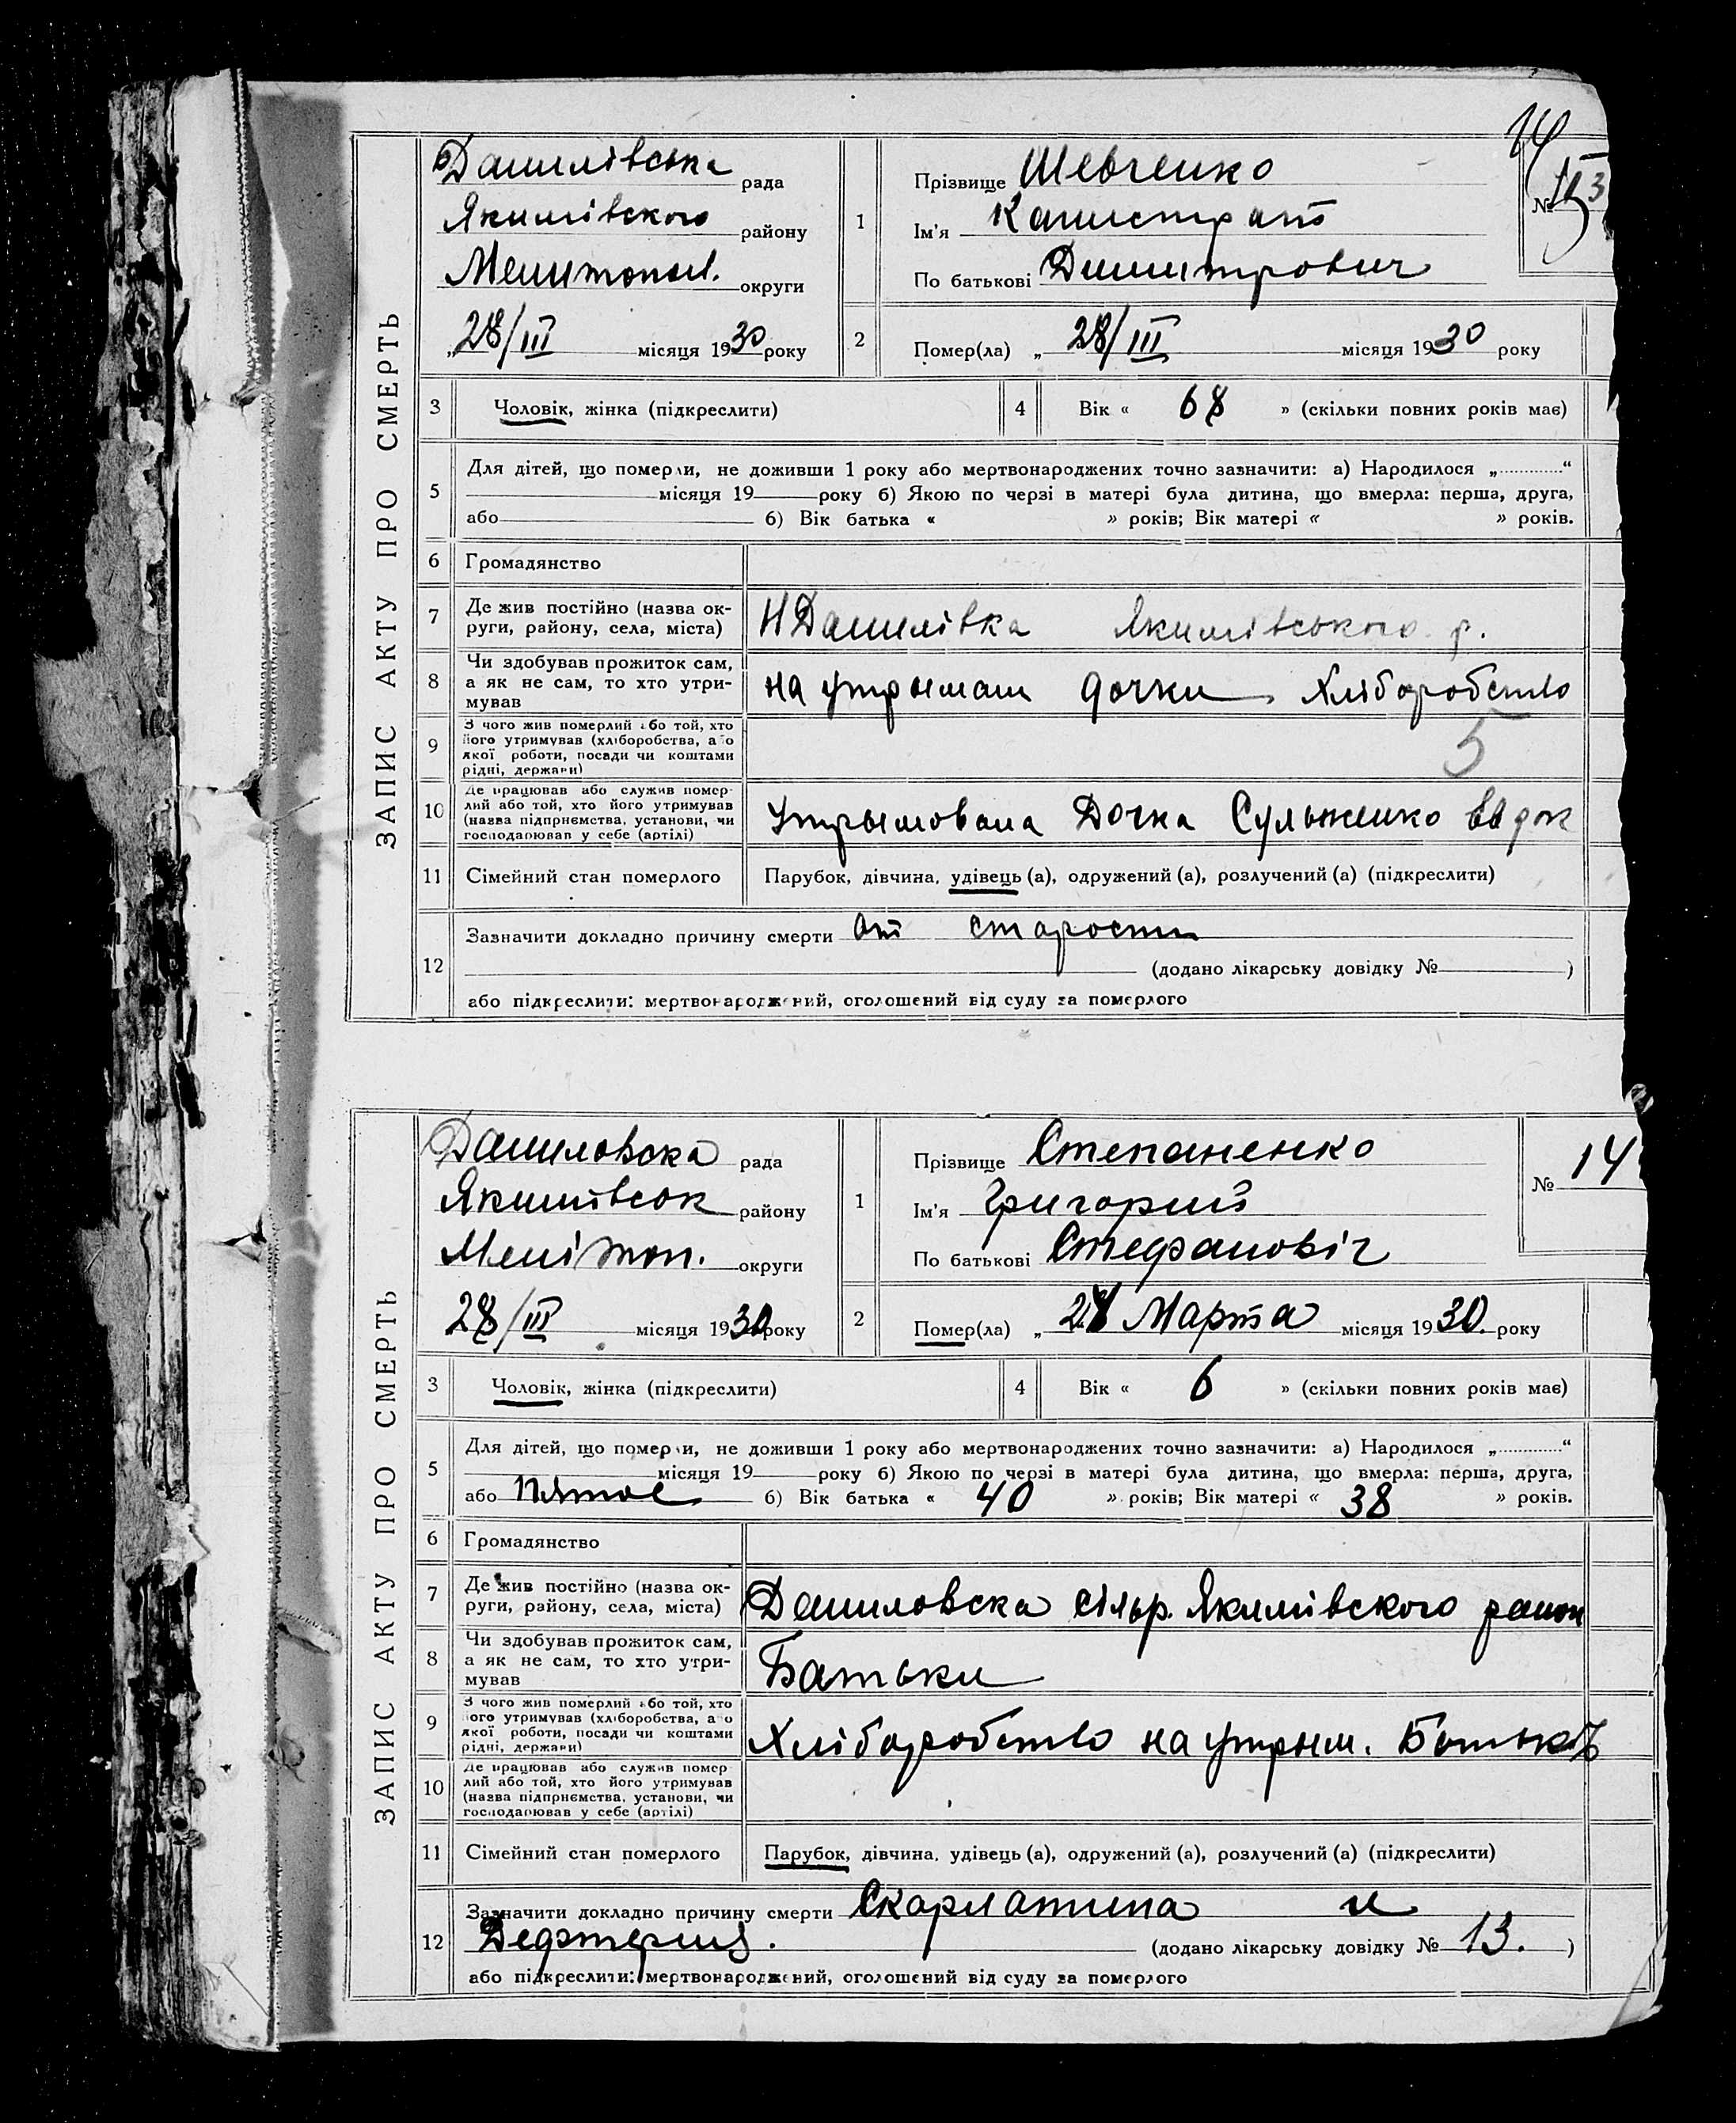 ЗАПИС АКТУ ПРО СМЕРТЬ
Данилівська рада
Якимівского району
Мелитопол. округи
„28/III місяця 1930 року
1
Прізвище Шевченко
Ім'я Калистрат
По батькові Димитрович
№ 13
2
Помер(ла) „ 28/III місяця 1930 року
3 Чоловік, жінка (підкреслити)
4 Вік « 68 » (скільки повних років має)
5
Для дітей, що померли, не доживши 1 року або мертвонароджених точно зазначити: а) Народилося „............“
місяця 19 року б) Якою по черзі в матері була дитина, що вмерла: перша, друга,
або б) Вік батька « » років; Вік матері « » років.
6 Громадянство
7 Де жив постійно (назва ок-
руги, району, села, міста)
Н Данилівка Якимівського р.
8 Чи здобував прожиток сам,
а як не сам, то хто утри-
мував
на утрымані дочки Хліборобство
9 З чого жив померлий або той, хто
його утримував (хліборобства, або
якої роботи, посади чи коштами
рідні, держави)
5
10 Де працював або служив помер-
лий або той, хто його утримував
(назва підприємства, установи, чи
господарював у себе (артілі)
Утрымовала Дочка Сульженко
11 Сімейний стан померлого
Парубок, дівчина, удівець (а), одружений (а), розлучений (а) (підкреслити)
12
Зазначити докладно причину смерти от старости
(додано лікарську довідку № )
або підкреслити: мертвонароджений, оголошений від суду за померлого
ЗАПИС АКТУ ПРО СМЕРТЬ
Даниловска рада
Якимівськ району
Мелітоп. округи
28/III місяця 1930 року
1
Прізвище Степаненко
Ім'я Григорий
По батькові Стефановіч
№ 14
2
Помер(ла) „ 28 Марта місяця 1930. року
3 Чоловік, жінка (підкреслити)
4 Вік « 6 » (скільки повних років має)
5
Для дітей, що померли, не доживши 1 року або мертвонароджених точно зазначити: а) Народилося „............“
місяця 19 року б) Якою по черзі в матері була дитина, що вмерла: перша, друга,
або пятое б) Вік батька « 40 » років; Вік матері « 38 » років.
6 Громадянство
7 Де жив постійно (назва ок-
руги, району, села, міста)
Даниловска сільр. Якимівского район
8 Чи здобував прожиток сам,
а як не сам, то хто утри-
мував
Батьки
9 З чого жив померлий або той, хто
його утримував (хліборобства, або
якої роботи, посади чи коштами
рідні, держави)
Хліборобство на утрым. Батьків
10 Де працював або служив помер-
лий або той, хто його утримував
(назва підприємства, установи, чи
господарював у себе (артілі)
11 Сімейний стан померлого
Парубок, дівчина, удівець (а), одружений (а), розлучений (а) (підкреслити)
12
Зазначити докладно причину смерти Скарлатина и
Дефтерия. (додано лікарську довідку № 13. )
або підкреслити: мертвонароджений, оголошений від суду за померлого